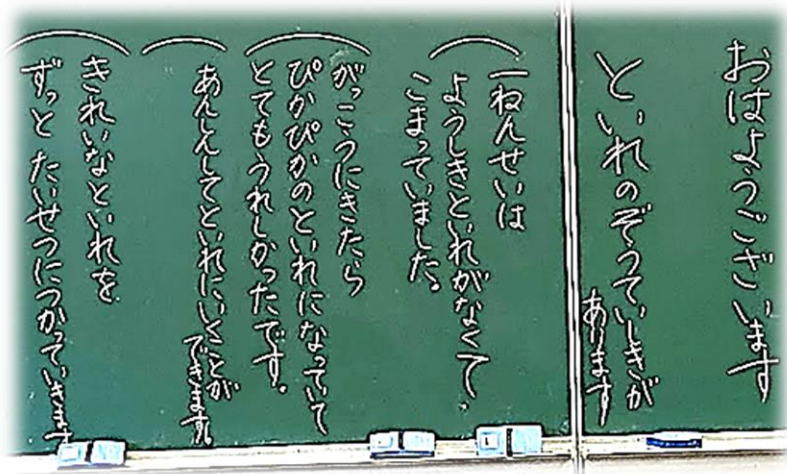 おはようございます
といれのぞうていしきが
あります
一ねんせいは
ようしきといれがなくて
こまっていました。
がっこうにきたら
ぴかぴかのといれになっていて
とてもうれしかったです。
あんしんしてといれにいくことが
できます。
きれいなといれを
ずっと たいせつにつかっていきます